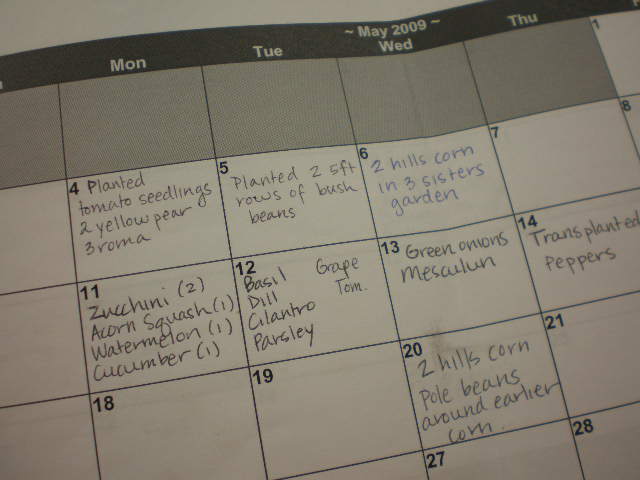 ~ May 2009 ~
Mon Tue Wed Thu
1
4 Planted
tomato seedlings
2 yellow pear
3 roma
5 Planted 2 5ft
rows of bush
beans
6
2 hills corn
in 3 sisters
garden
7
8
11
Zucchini (2)
Acorn Squash (1)
Watermelon (1)
Cucumber (1)
12
Basil Grape
Dill Tom.
Cilantro
Parsley
13
Green onions
Mesculun
14
Transplanted
Peppers
18
19
20
2 hills corn
Pole beans
around earlier
corn.
21
27
28